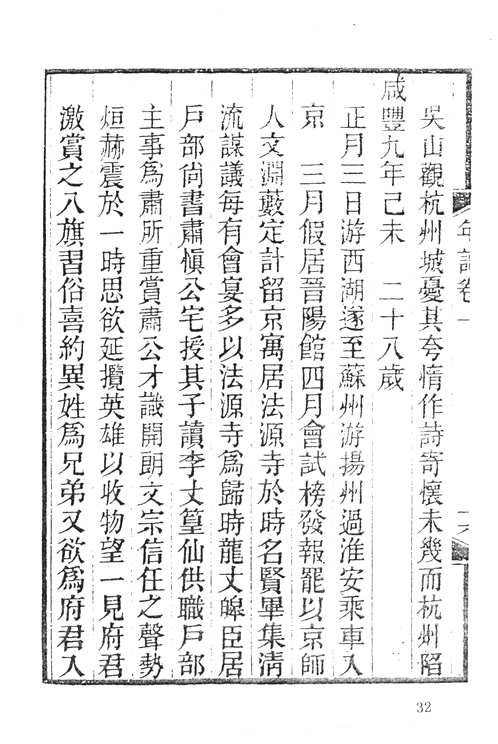 年譜卷一
吳山觀杭州城憂其夸惰作詩寄懷未幾而杭州陷
咸豐九年己未　二十八歲
正月三日游西湖遂至蘇州游揚州過淮安乘車入
京　三月假居晉陽館四月會試榜發報罷以京師
人文淵藪定計留京寓居法源寺於時名賢畢集淸
流謀議每有會宴多以法源寺爲歸時龍丈皞臣居
戶部尙書肅愼公宅授其子讀李丈篁仙供職戶部
主事爲肅所重賞肅公才識開朗文宗信任之聲勢
烜赫震於一時思欲延攬英雄以收物望一見府君
激賞之八旗習俗喜約異姓爲兄弟又欲爲府君入
32